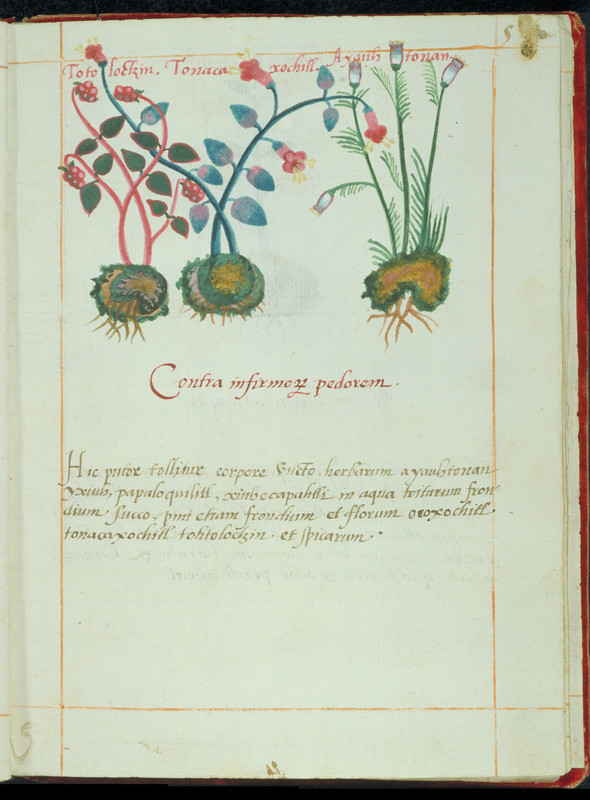 5
Toto lockzin. Tonaca xochitl. Ayauh tonan.
Contra infirmoꝝ pedorem.
Hic putor tollitur corpore uncto herbarum ayauhtonan
yxiuh, papaloquilitl, xiuhecapahtli in aqua tritarum fron-
dium succo, pini etiam frondium et florum oroxochitl
tonacaxochitl tototlockzin et spicarum.
5